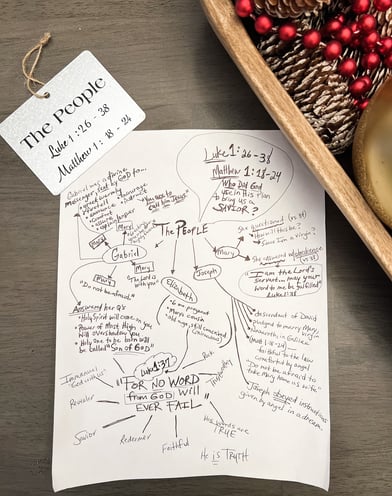 The People
Luke 1:26-38
Matthew 1:18-24
Luke 1:26-38
Matthew 1:18-24
Who Did God
use in His Plan
to bring us a
SAVIOR?
Gabriel was a divine
messenger, sent by GOD to...
The PEOPLE
Gabriel
Mary
"Do not be afraid"
Mary
"The Lord is
with you"
Answered her Q's
• Holy Spirit will come
• Power of Most High
will overshadow you
• Holy One to be born will
be called "Son of GOD"
Elizabeth
• 6 mo pregnant
• Mary's cousin
• Old age, still conceived
(miraculous)
Joseph
• descendant of David
• pledged to marry Mary
• Nazareth, in Galilee
(Matt 1:18-24)
• faithful to the law
• comforted by angel
"Do not be afraid to
take Mary home as wife"
Joseph obeyed instructions
given by angel in a dream.
Mary
She questioned (vs 34)
• How will this be?
• Since I'm a virgin?
She answered w/obedience
(vs 38)
"I am the Lord's
servant... may your
word to me be fulfilled"
Luke 1:38
Luke 1:37
"FOR NO WORD
from GOD will
EVER FAIL"
Immanuel
"God with us"
Revealer
Savior
Redeemer
Faithful
He is TRUTH
His words are
TRUE
Trustworthy
Rock